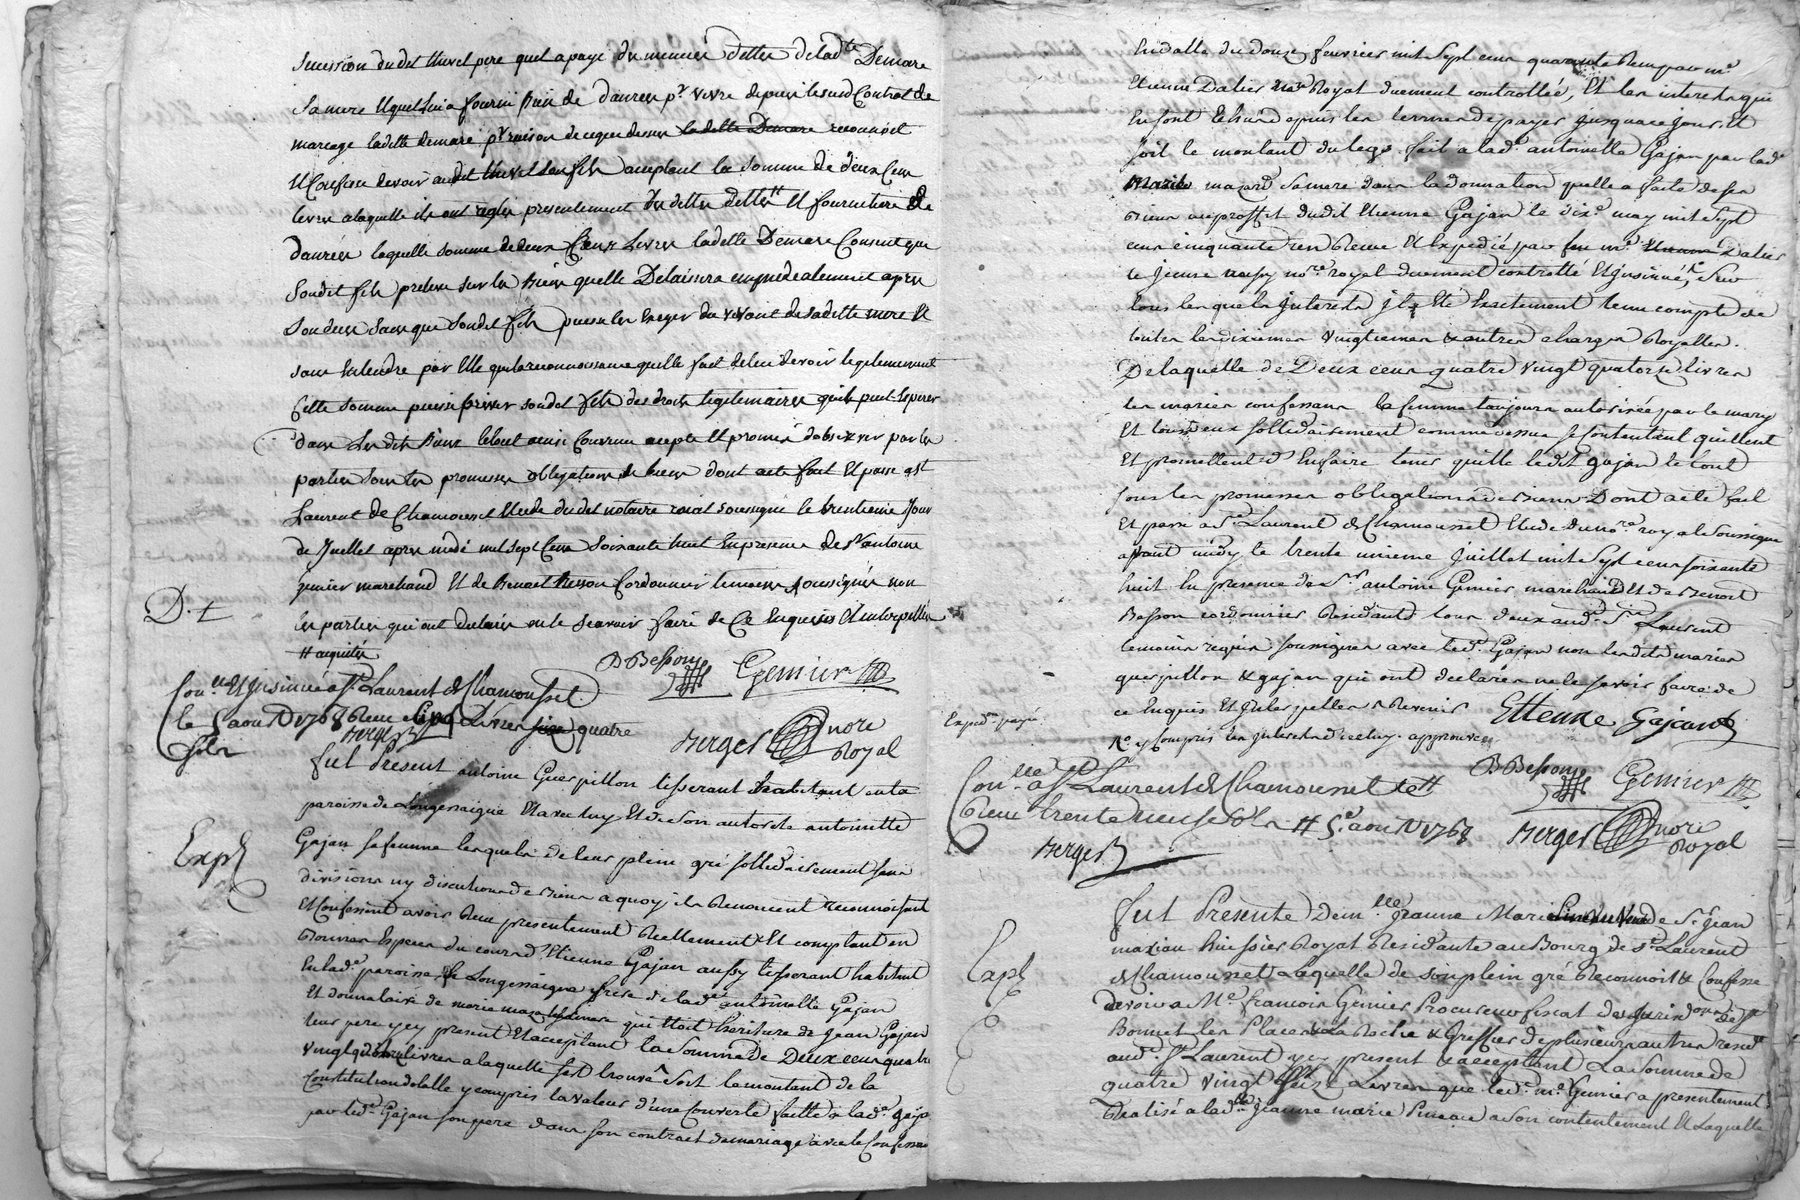 succession dudit thivel pere quel a payé du menuier dettes delad.te Demare
sa mere Et quel luia fourni Bien de danrees p.r vivre depuis lesusd Contrat de
mariage laditte demare p.r raison de ce que dessus ladette Demare reconnoit
Et Confesse devoir audit thivel son fils acceptant la somme de deux Cens
livres a laquelle ils ont reglés presentement les dittes dettes Et fourniture de
danrées laquelle somme de deux Cens Livres ladette Demare Consent que
Soudit fils preleve sur les Biens quelle Delaissera immediatement apres
son deces sans que soudit fils puisse les Exiger du vivant de sadette mere Et
sans entendre par Elle que la reconnoissance quelle fait de leu devoir legitimement
Cette somme puisse priver soudit fils des droits legitimaires quil peut Esperer
dans ses dits Biens le tout ainsi Convenu accepté Et promis dobserver par les
parties sous les promesses obligations de biens dont acte fait Et passé a S.t
Laurent de Chamousset Etude dudit notaire roial soussigné le trentieme Jour
de Juillet apres midi mil sept Cens Soixante huit En presence de S.r antoine
genier marchand Et de Benoit Besson Cordonnier temoins soussignés non
les parties qui ont declarés ne le scavoir faire de Ce Enquises Et interpellées
D. t
Et acquités
B Besson Genier
Con.lle Et Jnsinué a S.t Laurent de Chamousset
le 5 aout 1768 Receu Cinq Livres six quatre
sols
Berger
Berger nore
Royal
Fut Present antoine Guerpillon tisserant habitant en la
paroisse de Longessaigne Et avec luy Et de son autorité antoinette
Exp.é
Gajan sa femme lesquels de leur plein gré sollidairement sans
divisions ny discutions de Biens a quoy ils Renoncent reconnoissent
Et Confessent avoir Receu presentement Reellement Et comptant en
Bonnes Especes du cours d'Etienne Gajan aussy tisserant habitant
En lad.e paroisse de Longessaigne frere de lad.e antoinette Gajan
Et donnataire de marie mazard sa mere qui Etoit heritiere de Jean Gajan
leur pere ycy present Et acceptant la Somme de Deux cens quatre
vingt quatorze livres a laquelle s'est trouvé soit le montant de la
Constitution dotalle y compris la valeur d'une Couverte faitte a lad.e gajan
par led.t Gajan son pere dans son contract de mariage avec le Confessant
En datte du douze fevrier mil Sept cens quarante Receu par m.e
Etienne Dalier no.re Royal duement controllé, Et les interets qui
En sont Echus depuis les termes de payer jusqua ce jour Et
soit le montant du legs fait a lad.e antoinette Gajan par lad.e
Marie mazard sa mere dans la donnation quelle a faite de ses
Biens au proffit dudit Etienne Gajan le dix.e may mil Sept
cens cinquante Receue Et Expedié par feu m.e Dalier
le jeune aussy no.re royal duement controllé Et Jnsinué, Sur
tous lesquels Jnterets Jl a Eté Exactement tenu compte de
toutes les dixiemes vingtiemes & autres charges Royalles.
De laquelle de Deux cens Quatre vingt quatorze livres
les mariés confessans la femme toujours autorisée par le mary
Et tous deux sollidairement comme dessus se contentent quittent
Et promettent d'En faire tenir quitte ledit Gajan le tout
sous les promesses obligations de Biens Dont acte fait
Et passé a S.t Laurent de Chamousset Etude du no.re royal Soussigné
avant midy le trente unieme Juillet mil Sept cens soixante
huit En presence de S.r antoine Genier marchand Et de Benoit
Besson cordonnier Residants tous deux aud. S.t Laurent
temoins requis soussignés avec led.t Gajan non lesdits mariés
guerpillon & gajan qui ont declarés ne le savoir faire de
ce Enquis Et Jnterpellés
Exped.on payé
Etienne Gajan
R.e y Compris les Jnterets d'icelluy. approuvé
B Besson Genier
Con.lle a S.t Laurent de Chamousset le
Receu trente neuf sols 5.e aout 1768
Berger
Berger nore
Royal
Fut Presente Dem.lle Jeanne Marie Pineau veuve de S.r Jean
marian huissier Royal Residante au Bourg de S.t Laurent
Exp.é
de Chamousset Laquelle de son plein gré Reconnoit & Confesse
devoir a M.e francois Genier Procureur fiscal des Jurisd.ons de S.t
Bonnet les Places & La Roche & Greffier de plusieurs autres resid.t
aud. S.t Laurent ycy present & acceptant La somme de
quatre vingt seize Livres que led.t m.e Genier a presentement
Realisé a lad.e Jeanne marie Pineau a son contentement Et Laquelle